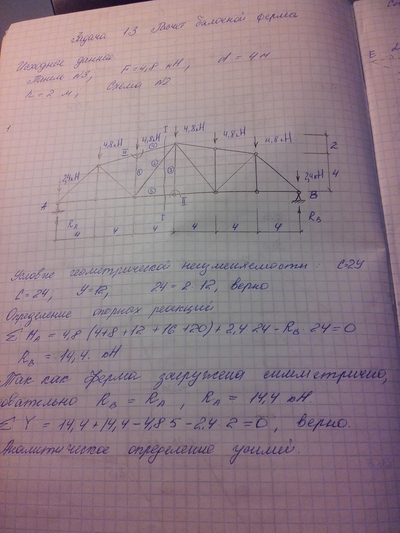 Задача 13 Расчет балочной фермы
Исходные данные
F=4,8 кН, d=4м
h=2 м, Схема
4,8кН 4,8кН I 4,8кН 4,8кН 4,8кН
2,4кН 2,4кН
2
4
A B
R_A R_B
4 4 4 4 4 4
Условие геометрической неизменяемости: С=2У
С=24, У=12, 24=2·12, верно
Определение опорных реакций
Σ M_A = 4,8 (4+8+12+16+20)+2,4·24-R_B·24=0
R_B=14,4 кН
Так как ферма загружена симметрично,
R_B=R_A, R_A=14,4 кН
Σ Y=14,4+14,4-4,8·5-2,4·2=0, верно.
Аналитическое определение усилий.